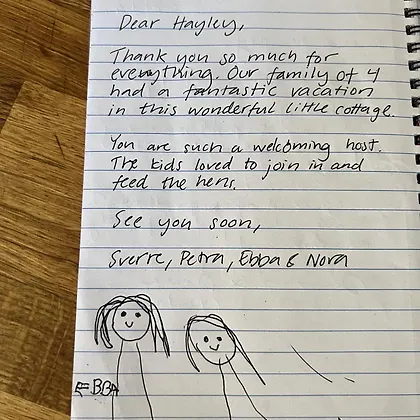 Dear Hayley,
Thank you so much for
everything. Our family of 4
had a fantastic vacation
in this wonderful little cottage.
You are such a welcoming host.
The kids loved to join in and
feed the hens.
See you soon,
Sverre, Petra, Ebba & Nora
EBBA